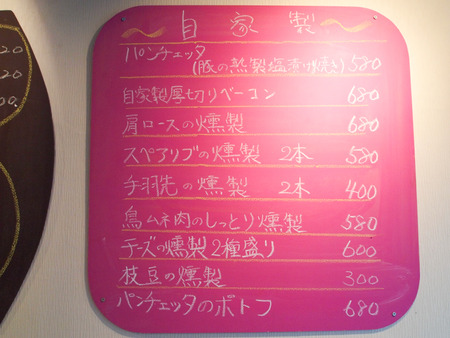 自家製
パンチェッタ
(豚の熟製塩漬け焼き) 580
自家製厚切りベーコン 680
肩ロースの燻製 680
スペアリブの燻製 2本 580
手羽先の燻製 2本 400
鳥ムネ肉のしっとり燻製 580
チーズの燻製2種盛り 600
枝豆の燻製 300
パンチェッタのポトフ 680
20
20
00